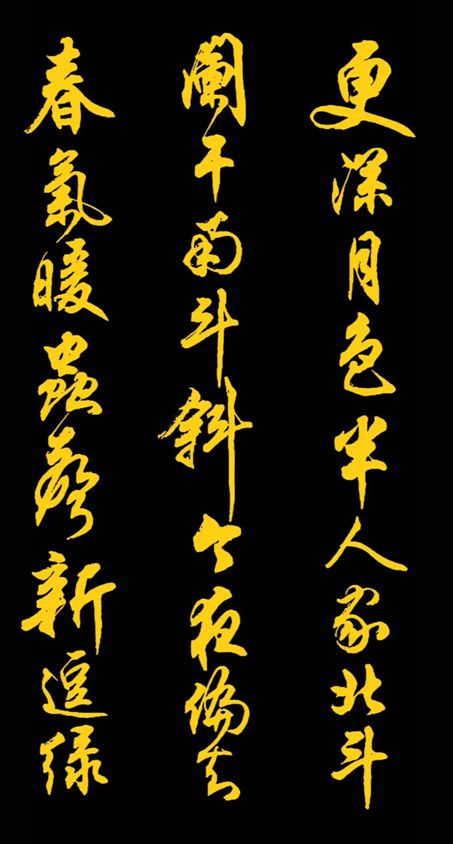 更深月色半人家北斗
闌干南斗斜今夜偏知
春氣暖蟲聲新逗绿